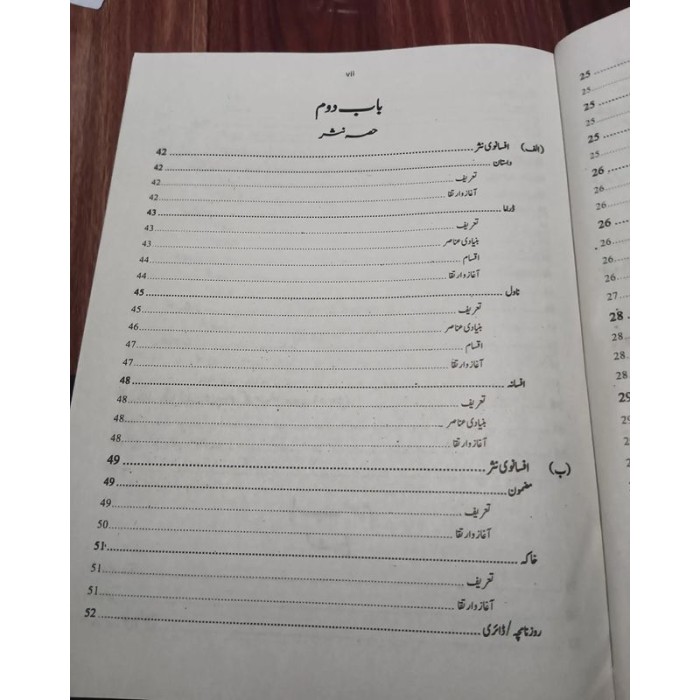 vii
باب دوم
حصہ نثر
(الف) افسانوی نثر ........ 42
داستان ........ 42
تعریف ........ 42
آغاز و ارتقا ........ 42
ڈراما ........ 43
تعریف ........ 43
بنیادی عناصر ........ 43
اقسام ........ 44
آغاز و ارتقا ........ 44
ناول ........ 45
تعریف ........ 45
بنیادی عناصر ........ 46
اقسام ........ 47
آغاز و ارتقا ........ 47
افسانہ ........ 48
تعریف ........ 48
بنیادی عناصر ........ 48
آغاز و ارتقا ........ 48
(ب) افسانوی نثر ........ 49
مضمون ........ 49
تعریف ........ 49
آغاز و ارتقا ........ 50
خاکہ ........ 51
تعریف ........ 51
آغاز و ارتقا ........ 51
روزنامچہ / ڈائری ........ 52
25
25
25
25
25
25
26
26
26
26
26
27
28
28
28
28
29
29
29